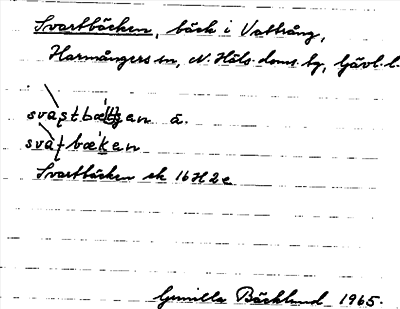 Svartbäcken, bäck i Vattrång,
Harmångers sn, N. Häls. doms. bg, Gävl. l.
svaṣtbæken ä.
svaṭbæken
Svartbäcken ek 16H2e
Gunilla Bäcklund 1965.